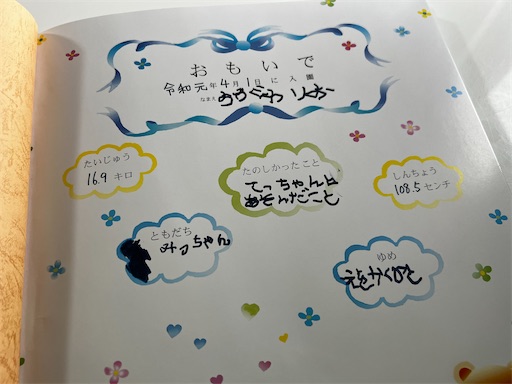 おもいで
令和元年4月1日に入園
なまえ
たいじゅう
16.9 キロ
たのしかったこと
てっちゃんと
あそんだこと
しんちょう
108.5 センチ
ともだち
みっちゃん
ゆめ
えをかくひと